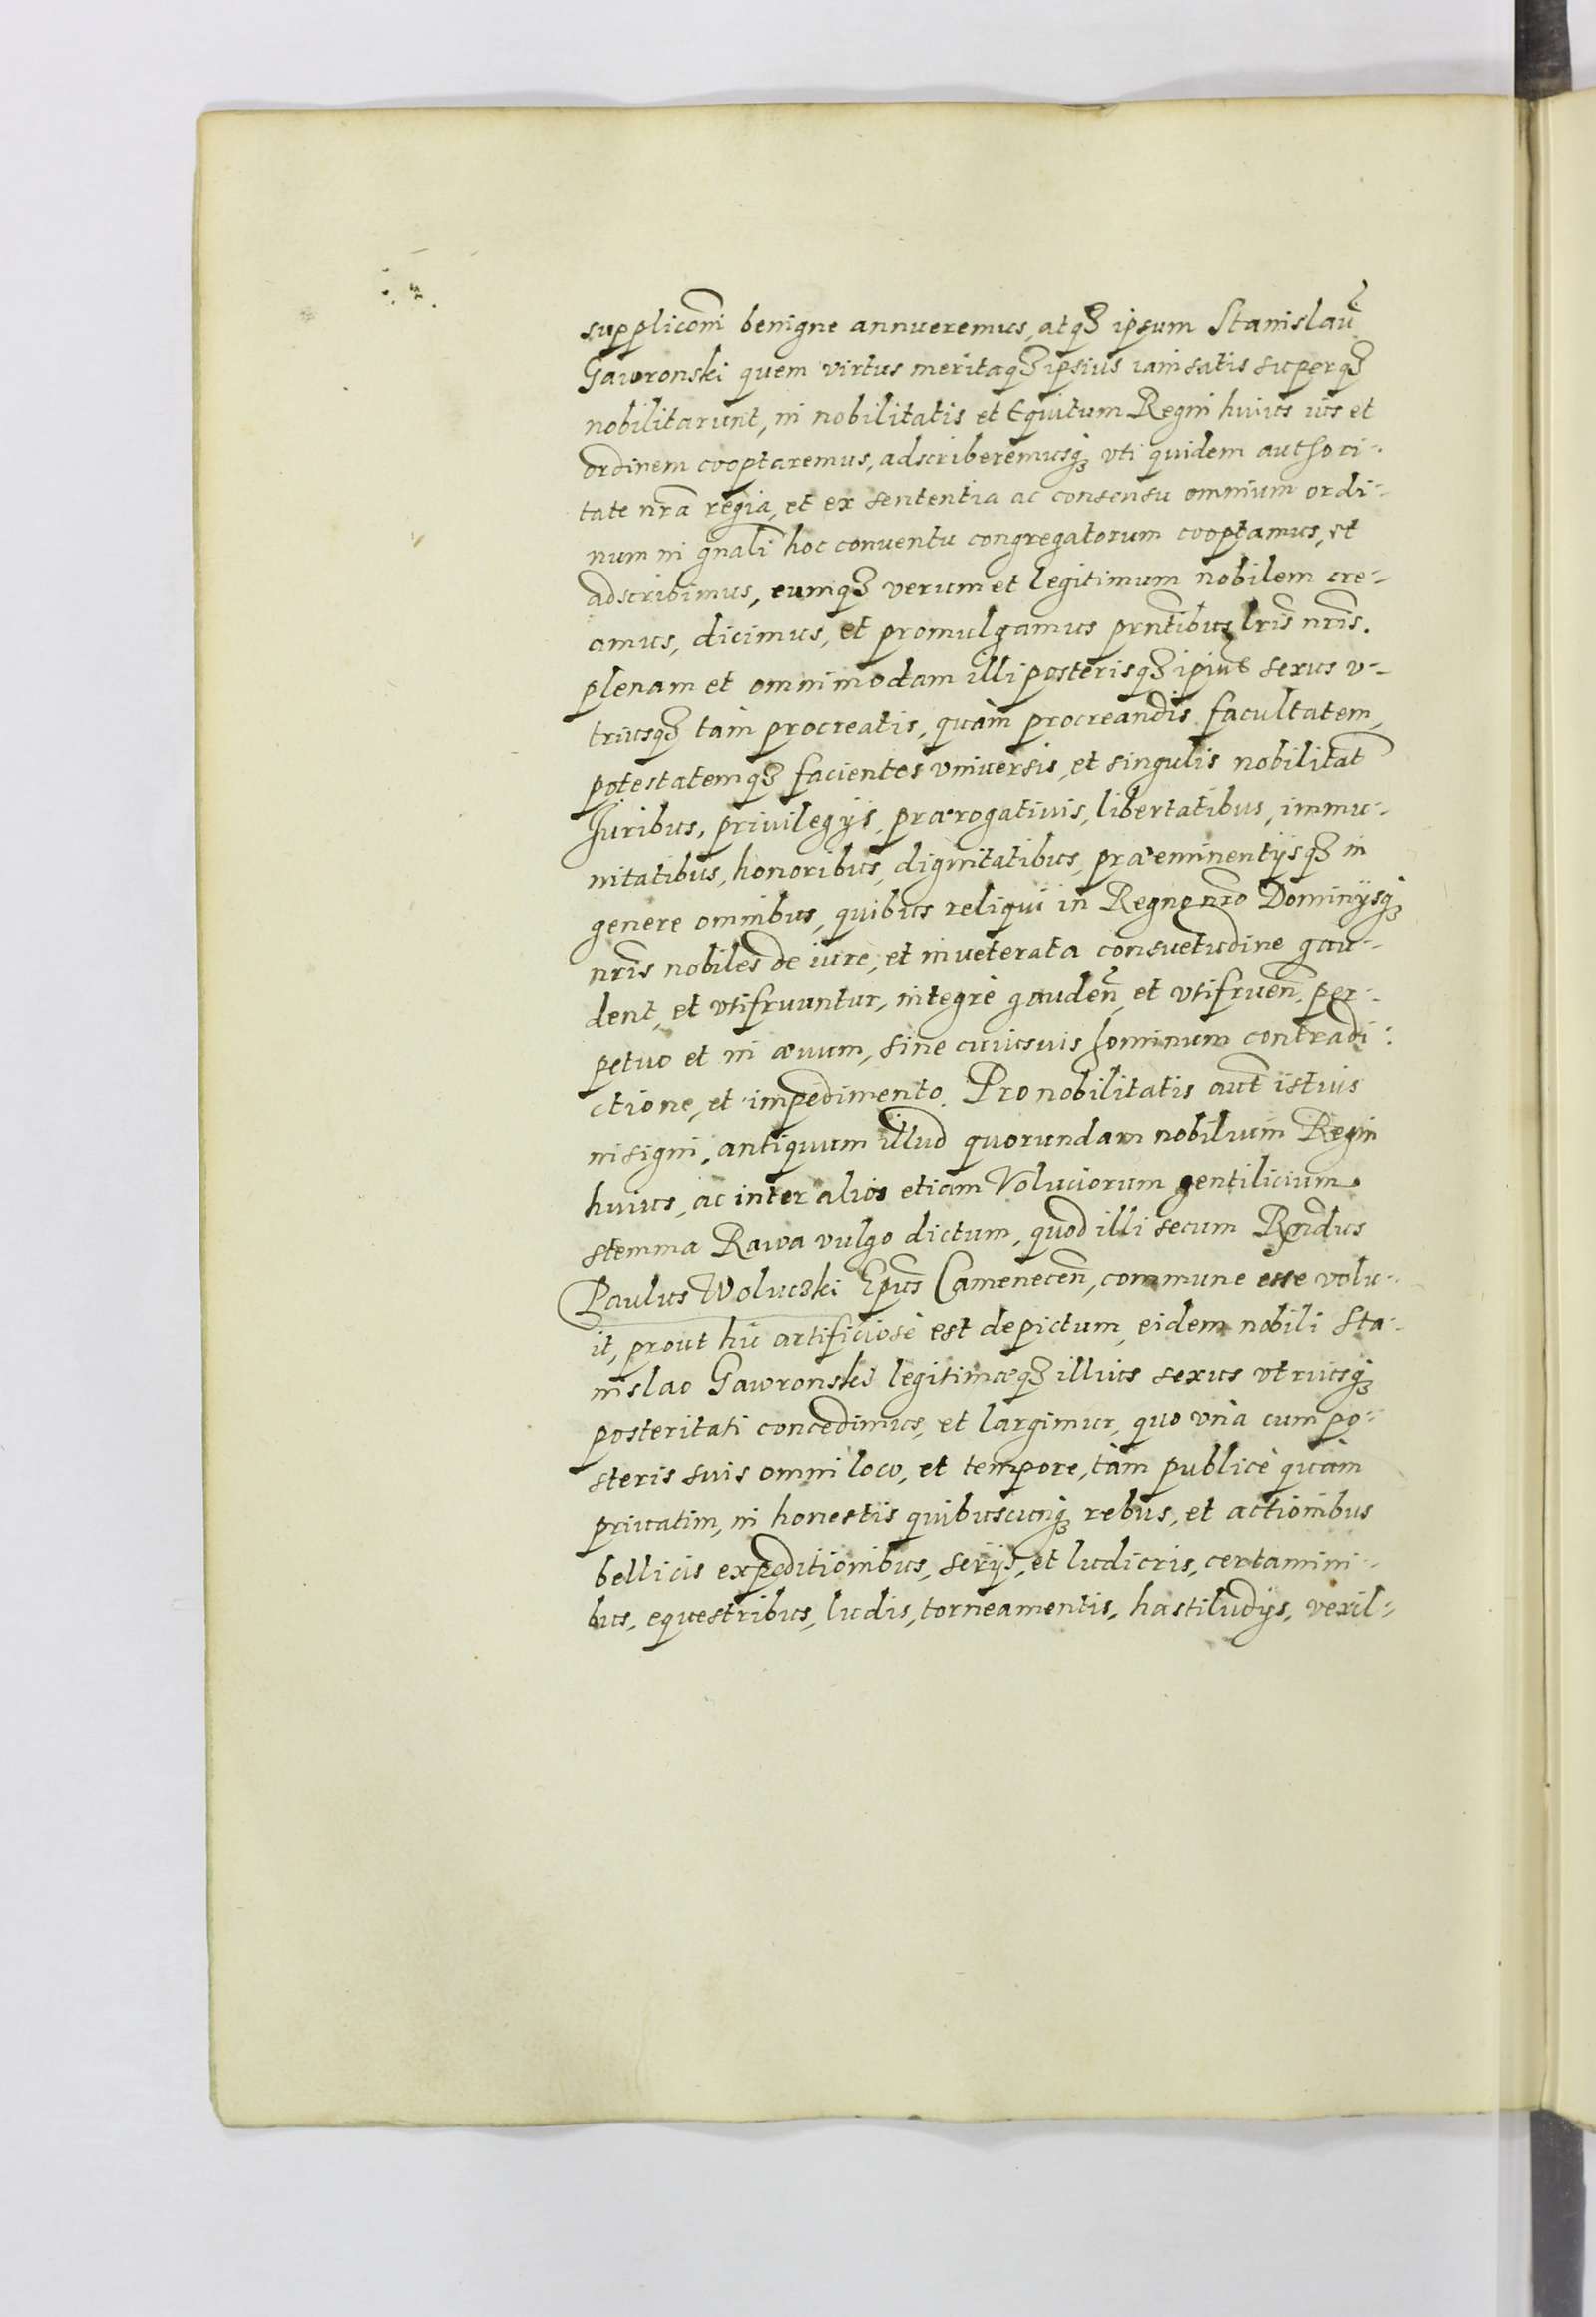 supplicõni benigne annueremus, atq₃ ipsum Stanislaũ
Gawronski quem virtus meritaq₃ ipsius iam satis superq₃
nobilitarunt, in nobilitatis et Equitum Regni huius ius et
ordinem cooptaremus, adscriberemusq₃ vti quidem authori-
tate nrã regia, et ex sententia ac consensu omnium ordi-
num in gnãli hoc conuentu congregatorum cooptamus, et
adscribimus, eumq₃ verum et legitimum nobilem cre-
amus, dicimus, et promulgamus prñtibus lrĩs nrĩs.
plenam et omnimodam illi posterisq₃ ipĩus sexus v-
triusq₃ tàm procreatis, quàm procreandis facultatem,
potestatemq₃ facientes vniuersis, et singulis nobilitat̃
Iuribus, priuilegijs, prærogatiuis, libertatibus, immu-
nitatibus, honoribus, dignitatibus, præeminentijsq₃ in
genere omnibus, quibus reliqui in Regno nrõ Dominijsq₃
nrĩs nobiles de iure, et inueterata consuetudine gau-
dent, et vtifruuntur, integrè gauden̄, et vtifruen̄, per-
petuo et in æuum, sine cuiusuis hominum contradi-
ctione, et impedimento. Pro nobilitatis aut̃ istius
insigni, antiquum illud quorundam nobilium Regni
huius, ac inter alios etiam Voluciorum gentilicium
stemma Rawa vulgo dictum, quod illi secum Rñdus
Paulus Woluczki Ep̃us Camenecen̄, commune esse volu-
it, prout hic artificiosè est depictum, eidem nobili Sta-
nislao Gawronski legitimæq₃ illius sexus vtriusq₃
posteritati concedimus, et largimur, quo vnà cum po-
steris suis omni loco, et tempore, tàm publicè quàm
priuatim, in honestis quibuscunq₃ rebus, et actionibus
bellicis expeditionibus, serijs, et ludicris, certamini-
bus, equestribus, ludis, torneamentis, hastiludijs, vexil-